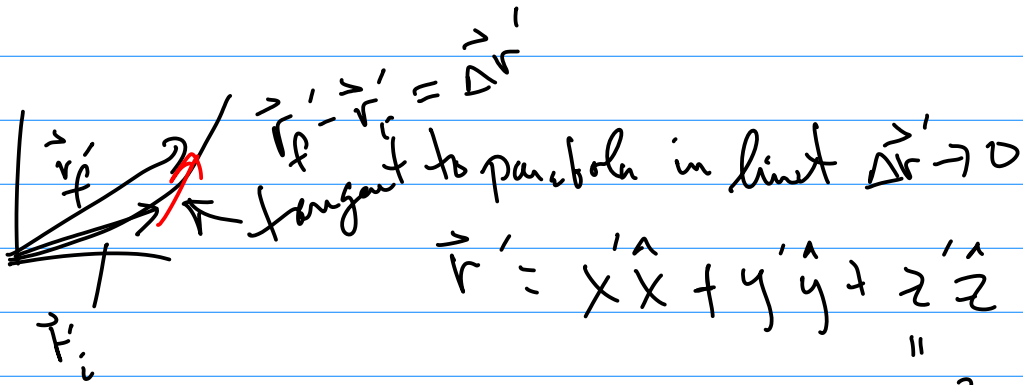 r⃗_f' - r⃗_i' = Δr⃗'
r⃗_f'
tangent to parabola in limit Δr⃗' → 0
r⃗' = x'x̂ + y'ŷ + z'ẑ
r⃗_i'
"